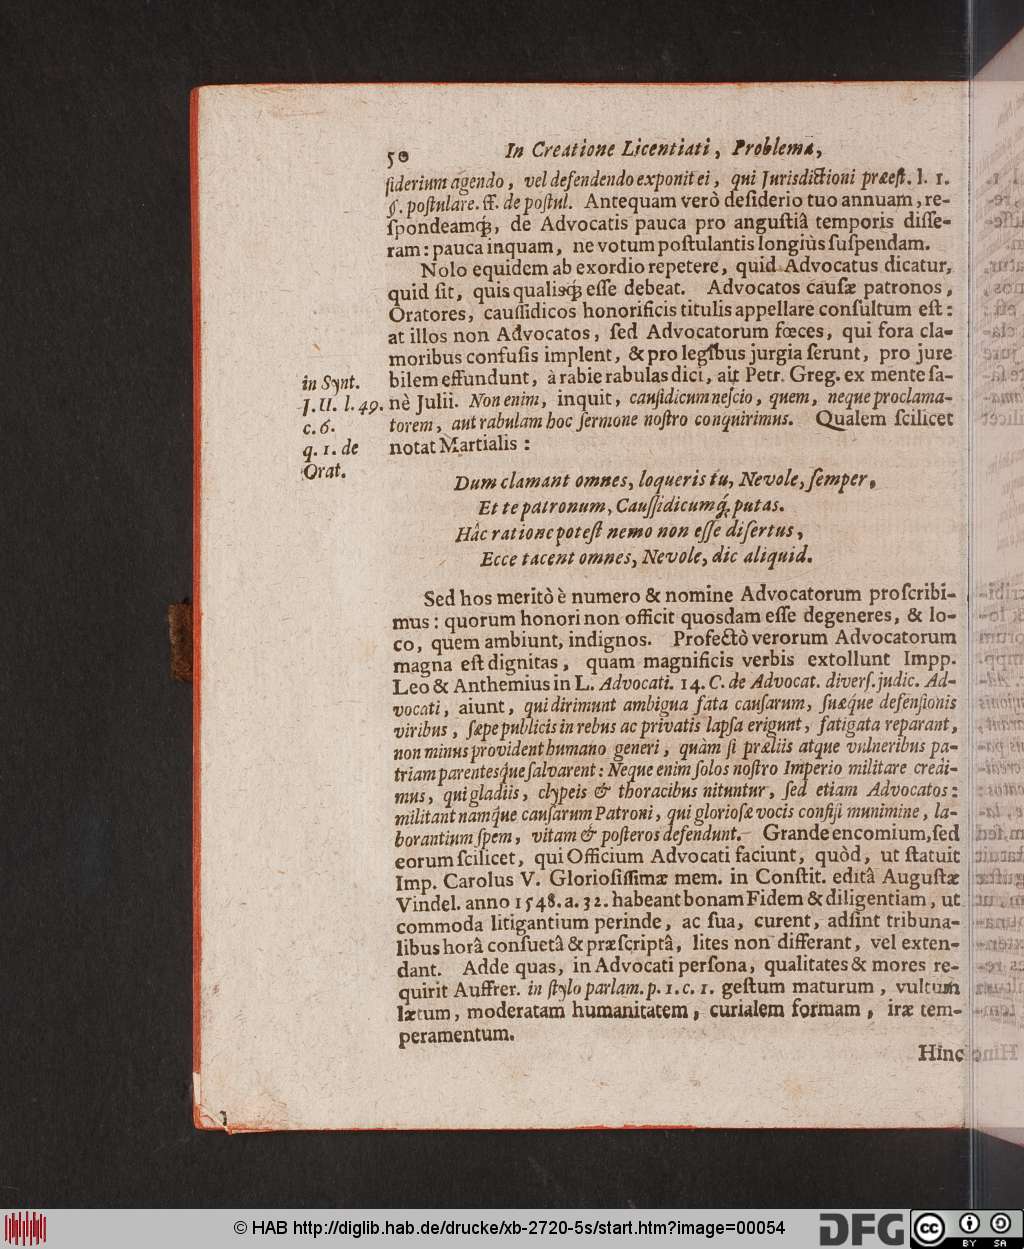 50 In Creatione Licentiati, Problema,
ſiderium agendo, vel defendendo exponit ei, qui Jurisdictioni præeſt. l. 1.
§. poſtulare. ff. de poſtul. Antequam verò deſiderio tuo annuam, re-
ſpondeamq́;, de Advocatis pauca pro anguſtiâ temporis diſſe-
ram: pauca inquam, ne votum poſtulantis longiùs ſuſpendam.
Nolo equidem ab exordio repetere, quid Advocatus dicatur,
quid ſit, quis qualisq́; eſſe debeat. Advocatos cauſæ patronos,
Oratores, cauſſidicos honorificis titulis appellare conſultum eſt:
at illos non Advocatos, ſed Advocatorum fœces, qui fora cla-
moribus confuſis implent, & pro legibus jurgia ſerunt, pro jure
bilem effundunt, à rabie rabulas dici, ait Petr. Greg. ex mente ſa-
nè Julii. Non enim, inquit, cauſidicum neſcio, quem, neque proclama-
torem, aut rabulam hoc ſermone noſtro conquirimus. Qualem ſcilicet
notat Martialis:
in Synt.
J. U. l. 49.
c. 6.
q. 1. de
Orat.
Dum clamant omnes, loqueris tu, Nevole, ſemper,
Et te patronum, Cauſſidicumq́; putas.
Hâc ratione poteſt nemo non eſſe diſertus,
Ecce tacent omnes, Nevole, dic aliquid.
Sed hos meritò è numero & nomine Advocatorum proſcribi-
mus: quorum honori non officit quosdam eſſe degeneres, & lo-
co, quem ambiunt, indignos. Profectò verorum Advocatorum
magna eſt dignitas, quam magnificis verbis extollunt Impp.
Leo & Anthemius in L. Advocati. 14. C. de Advocat. diverſ. judic. Ad-
vocati, aiunt, qui dirimunt ambigua fata cauſarum, ſuæq́ue defenſionis
viribus, ſæpe publicis in rebus ac privatis lapſa erigunt, fatigata reparant,
non minus provident humano generi, quàm ſi præliis atque vulneribus pa-
triam parentesq́ue ſalvarent: Neque enim ſolos noſtro Imperio militare credi-
mus, qui gladiis, clypeis & thoracibus nituntur, ſed etiam Advocatos:
militant namq́ue cauſarum Patroni, qui glorioſæ vocis confiſi munimine, la-
borantium ſpem, vitam & poſteros defendunt. Grande encomium, ſed
eorum ſcilicet, qui Officium Advocati faciunt, quòd, ut ſtatuit
Imp. Carolus V. Glorioſiſſimæ mem. in Conſtit. editâ Auguſtæ
Vindel. anno 1548. a. 32. habeant bonam Fidem & diligentiam, ut
commoda litigantium perinde, ac ſua, curent, adſint tribuna-
libus horâ conſuetâ & præſcriptâ, lites non differant, vel exten-
dant. Adde quas, in Advocati perſona, qualitates & mores re-
quirit Auffrer. in ſtylo parlam. p. 1. c. 1. geſtum maturum, vultum
lætum, moderatam humanitatem, curialem formam, iræ tem-
peramentum.
Hinc
© HAB http://diglib.hab.de/drucke/xb-2720-5s/start.htm?image=00054
DFG
cc BY SA